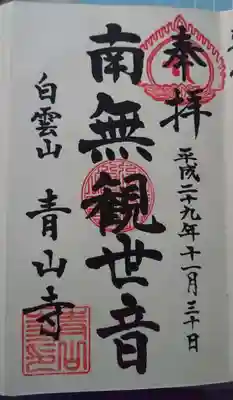 奉拝
平成二十九年十一月三十日
南無観世音
白雲山 青山寺